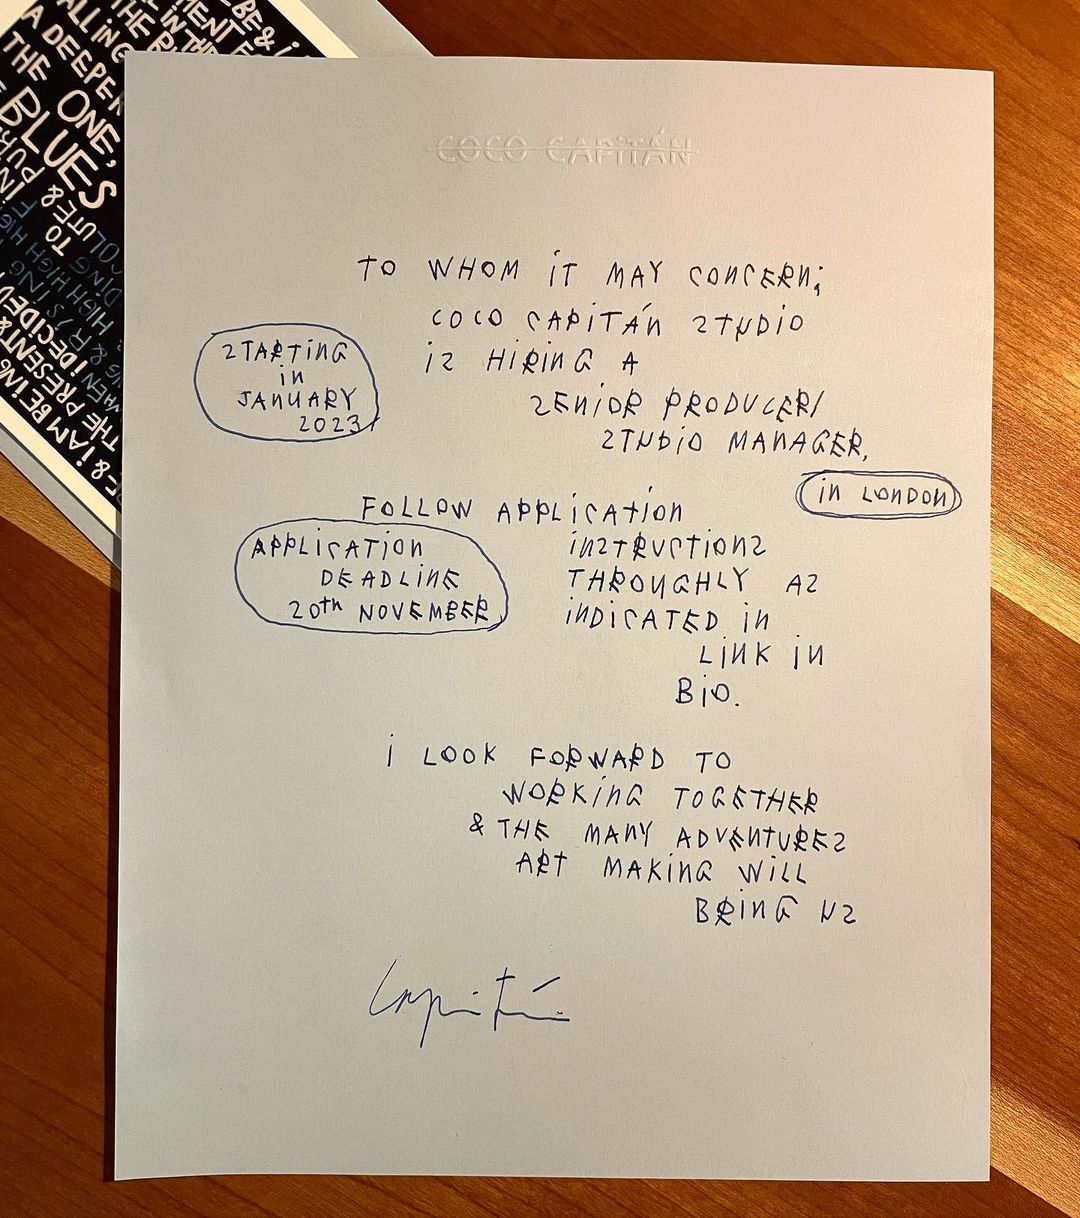 BE & i
A DEEPER
THE ONE,
BLUES
TO
HIGH HIGH
DECIDED
THE PRESENT &
& i AM BEING
COCO CAPiTÁN
TO WHOM iT MAY CONCERN;
COCO CAPiTÁN STUDIO
iS HiRiNG A
SENiOR PRODUCER/
STUDiO MANAGER,
STARTiNG
iN
JANUARY
2023
iN LONDON
FOLLOW APPLiCATiON
iNSTRUCTiONS
THROUGHLY AS
iNDiCATED iN
LiNK iN
BiO.
APPLiCATiON
DEADLiNE
20th NOVEMBER
i LOOK FORWARD TO
WORKiNG TOGETHER
& THE MANY ADVENTURES
ART MAKiNG WiLL
BRiNG US
Capitán